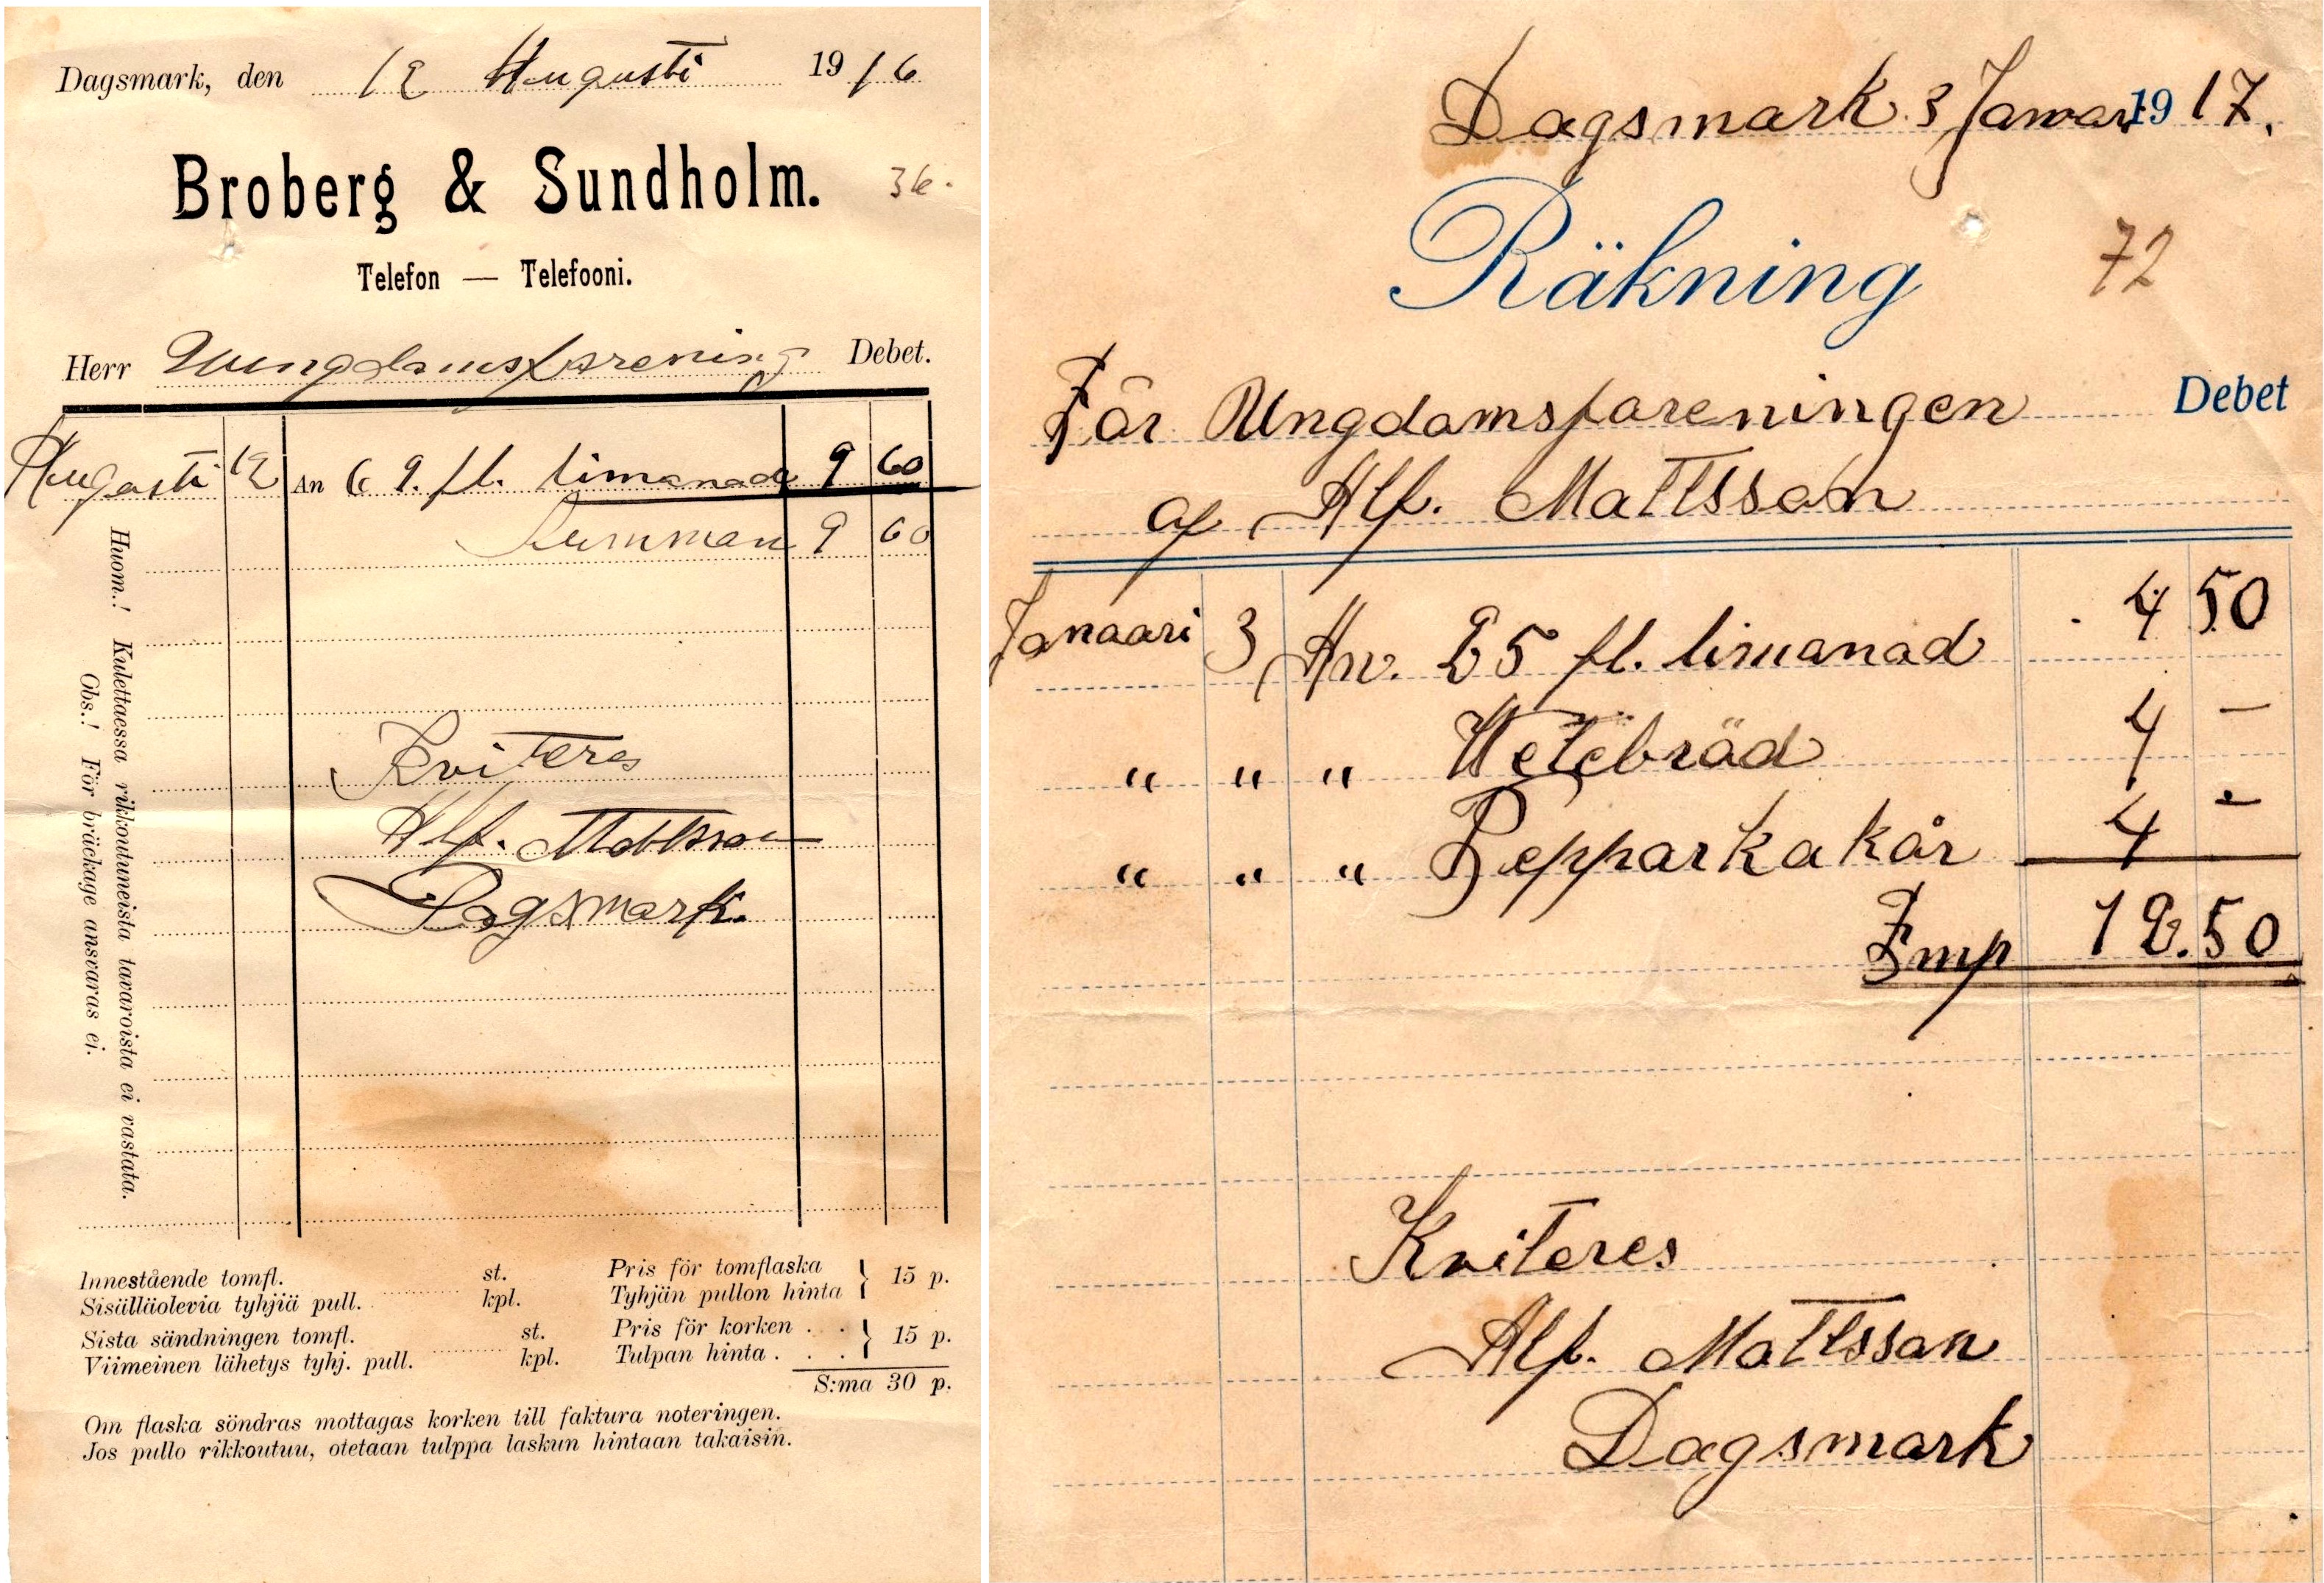 Dagsmark, den 12 Augusti 1916
Broberg & Sundholm.
36.
Telefon — Telefooni.
Herr Uungdamsförening Debet.
Augusti 12 An 6 9. fl. limanad 9 60
Summan 9 60
Kviteres
Alf. Mattsson
Dagsmark.
Huom.! Kulettaessa rikkoutuneista tavaroista ei vastata.
Obs.! För bräckage ansvaras ei.
Innestående tomfl. st. Pris för tomflaska } 15 p.
Sisälläolevia tyhjiä pull. kpl. Tyhjän pullon hinta
Sista sändningen tomfl. st. Pris för korken . . } 15 p.
Viimeinen lähetys tyhj. pull. kpl. Tulpan hinta . . .
S:ma 30 p.
Om flaska söndras mottagas korken till faktura noteringen.
Jos pullo rikkoutuu, otetaan tulppa laskun hintaan takaisin.
Dagsmark. 3 Januari 1917.
Räkning
72
För Ungdamsföreningen Debet
af Alf. Mattsson
Januari 3 An. 25 fl. limanad 4 50
" " " Wetebräd 4 —
" " " Pepparkakår 4 —
Fmp 12.50
Kviteres
Alf. Mattsson
Dagsmark